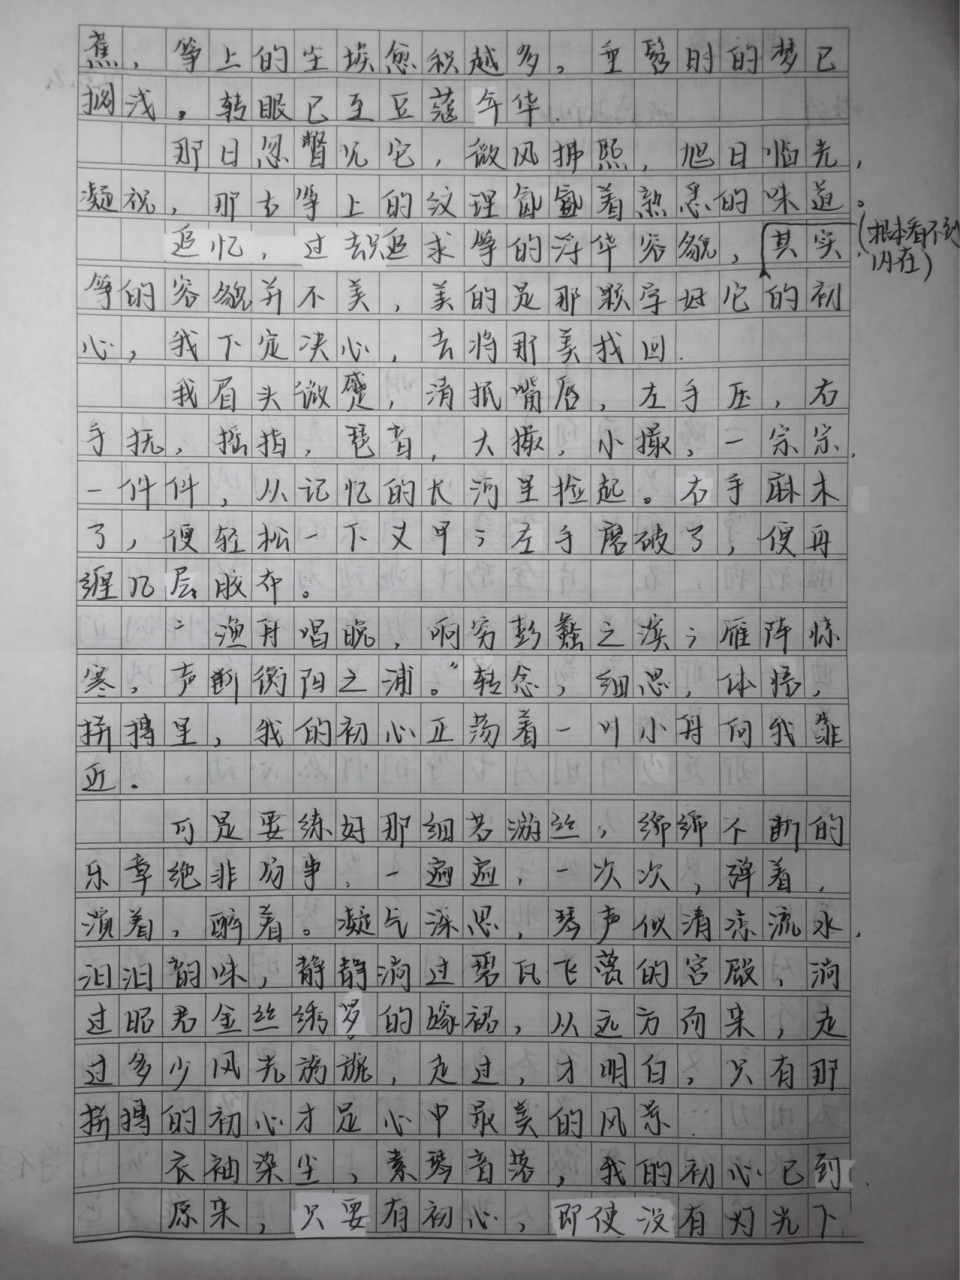 蕉，筝上的尘埃愈积越多，垂髫时的梦已
搁浅，转眼已至豆蔻年华.
那日忽瞥见它，微风拂熙，旭日临光，
凝视，那古筝上的纹理氤氲着熟悉的味道。
追忆，过去只追求筝的浮华容貌，其实(根本看不到内在)
筝的容貌并不美，美的是那颗学好它的初
心，我下定决心，去将那美找回.
我眉头微蹙，清抿嘴唇，左手压，右
手抚，摇指，琶音，大撮，小撮，一宗宗，
一件件，从记忆的长河里捡起。右手麻木
了，便轻松一下义甲；左手磨破了，便再
缠几层胶布。
“渔舟唱晚，响穷彭蠡之滨；雁阵惊
寒，声断衡阳之浦。”转念，细思，体悟，
拼搏里，我的初心正荡着一叶小舟向我靠
近.
可是要练好那细若游丝，绵绵不断的
乐章绝非易事，一遍遍，一次次，弹着，
演着，醉着。凝气深思，琴声似清凉流水，
汩汩韵味，静静淌过碧瓦飞甍的宫殿，淌
过昭君金丝绣罗的嫁裙，从远方而来，走
过多少风光旖旎，走过，才明白，只有那
拼搏的初心才是心中最美的风景.
衣袖染尘，素琴音落，我的初心已到
原来，只要有初心，即使没有灯光下